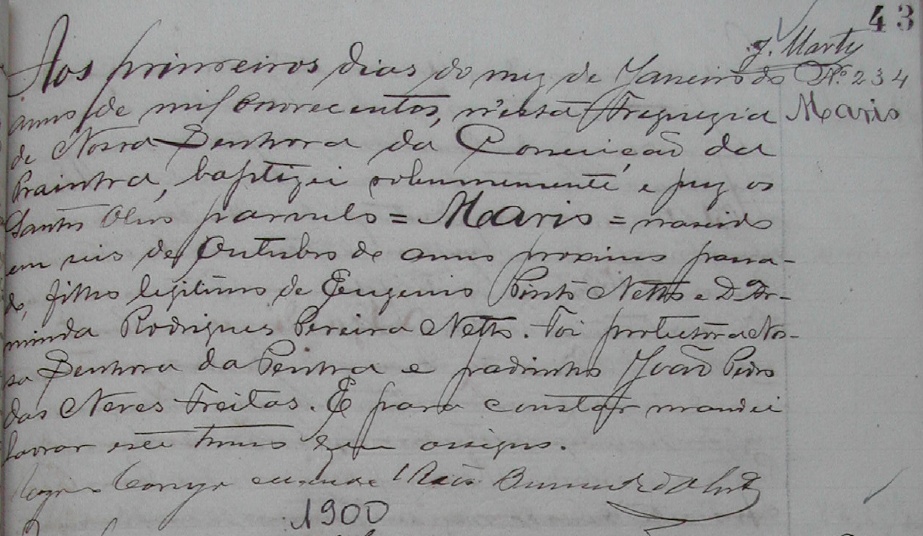 43
J. Marty
Aos primeiros dias do mez de Janeiro do Nº 234
anno de mil e novecentos, n'esta Freguezia Mario
de Nossa Senhora da Conceição da
Prainha, baptizei solemnemente, e puz os
Santos Oleos parvulo = Mario = nascido
em seis de Outubro do anno proximo passa-
do, filho legitimo de Eugenio Pinto Netto e D. Ar-
minda Rodrigues Pereira Netto. Foi protectora Nos-
sa Senhora da Penha e padrinho João Pedro
das Neves Freitas. E para constar mandei
lavrar este termo que assigno.
1900